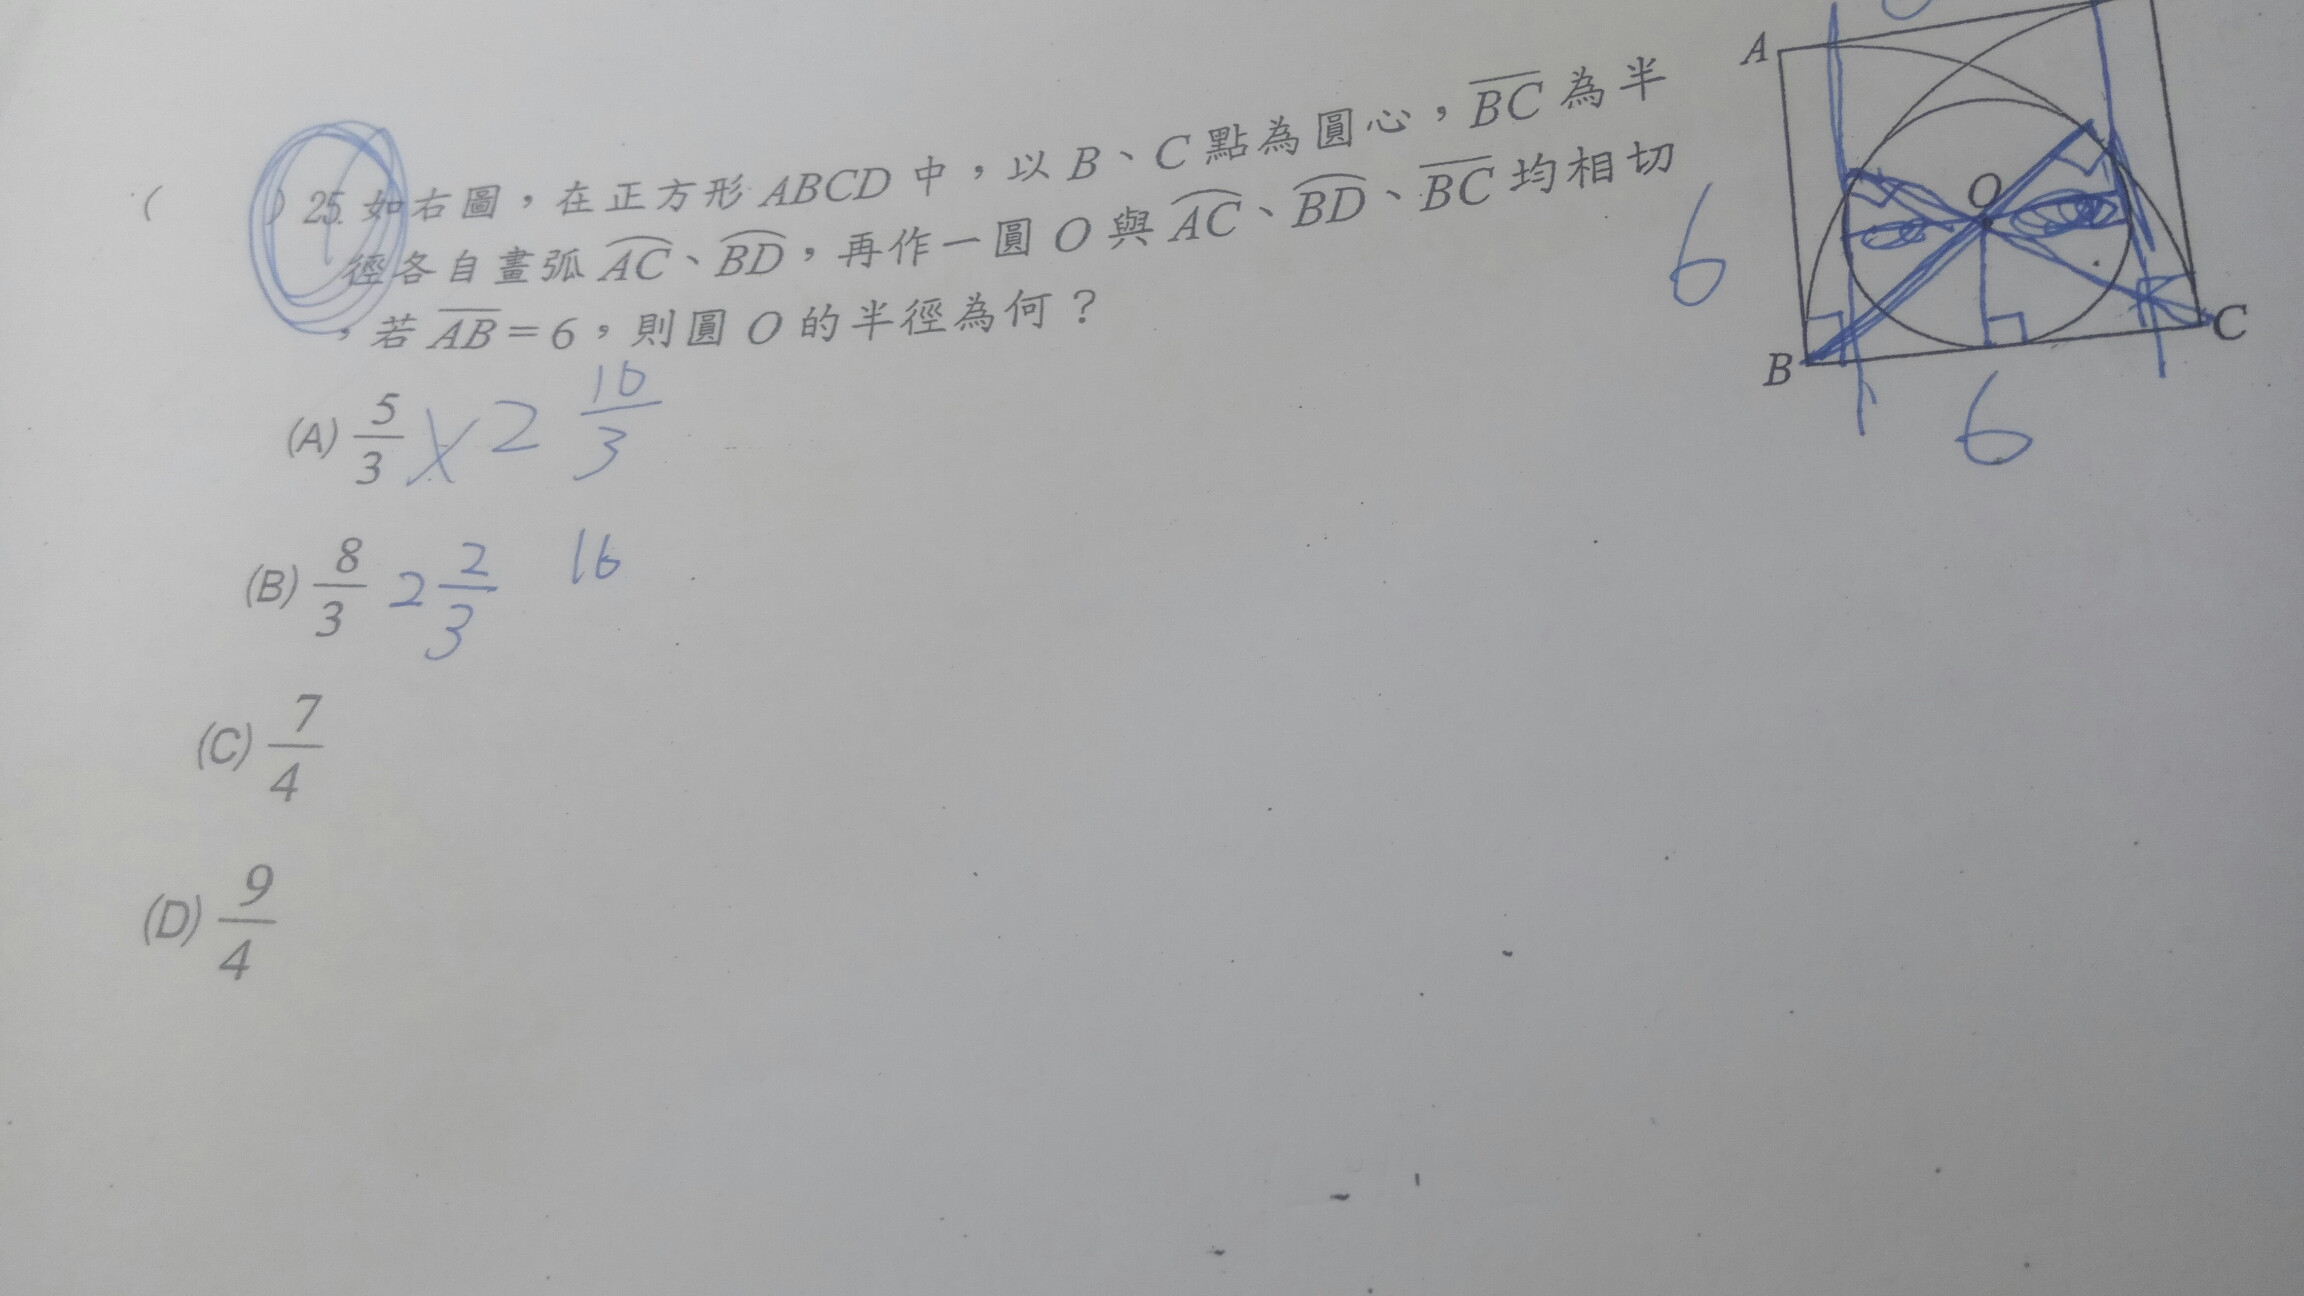 ( )25. 如右圖，在正方形 ABCD 中，以 B、C 點為圓心，BC 為半
徑各自畫弧 AC、BD，再作一圓 O 與 AC、BD、BC 均相切
，若 AB = 6，則圓 O 的半徑為何？
(A) 5/3 × 2 10/3
(B) 8/3 2 2/3 16
(C) 7/4
(D) 9/4
A
O
6
B
C
6